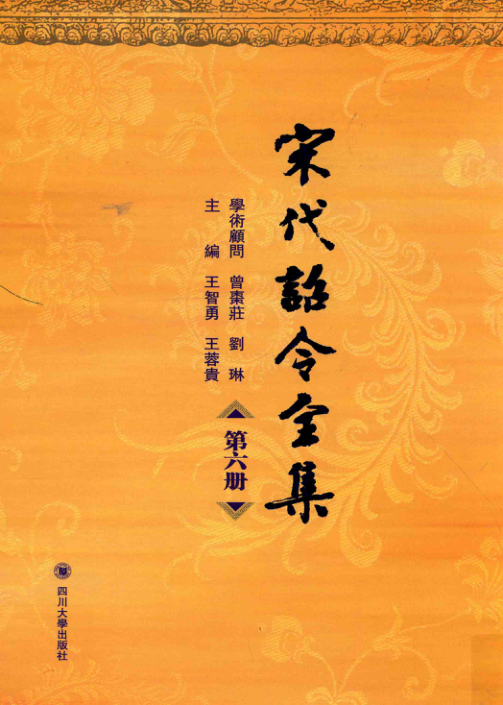 宋代詔令全集
學術顧問 曾棗莊 劉琳
主編 王智勇 王蓉貴
第六册
四川大學出版社